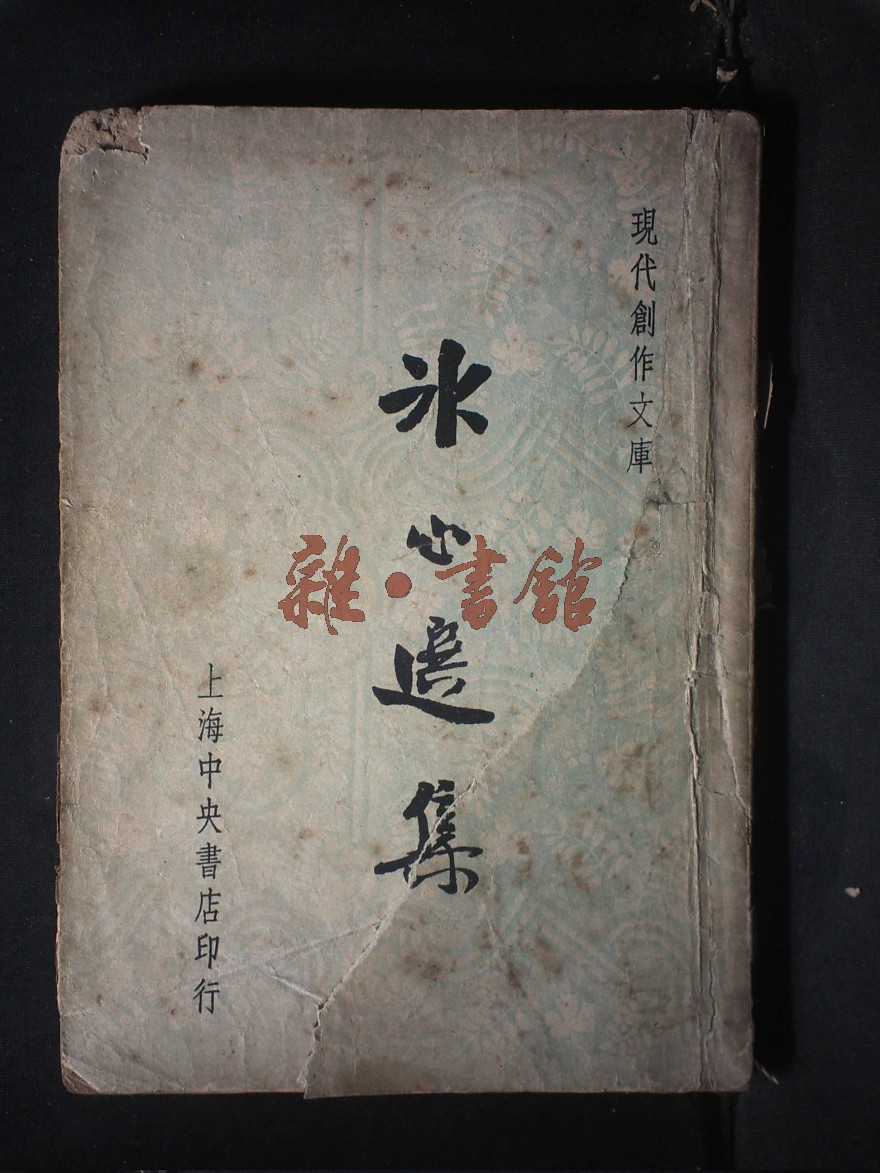 現代創作文庫
冰心選集
上海中央書店印行
雜·書館